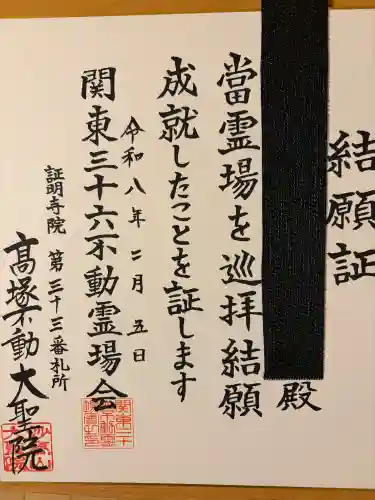 結願証
殿
當霊場を巡拝結願
成就したことを証します
令和八年二月五日
関東三十六不動霊場会
証明寺院 第三十三番札所
高塚不動 大聖院